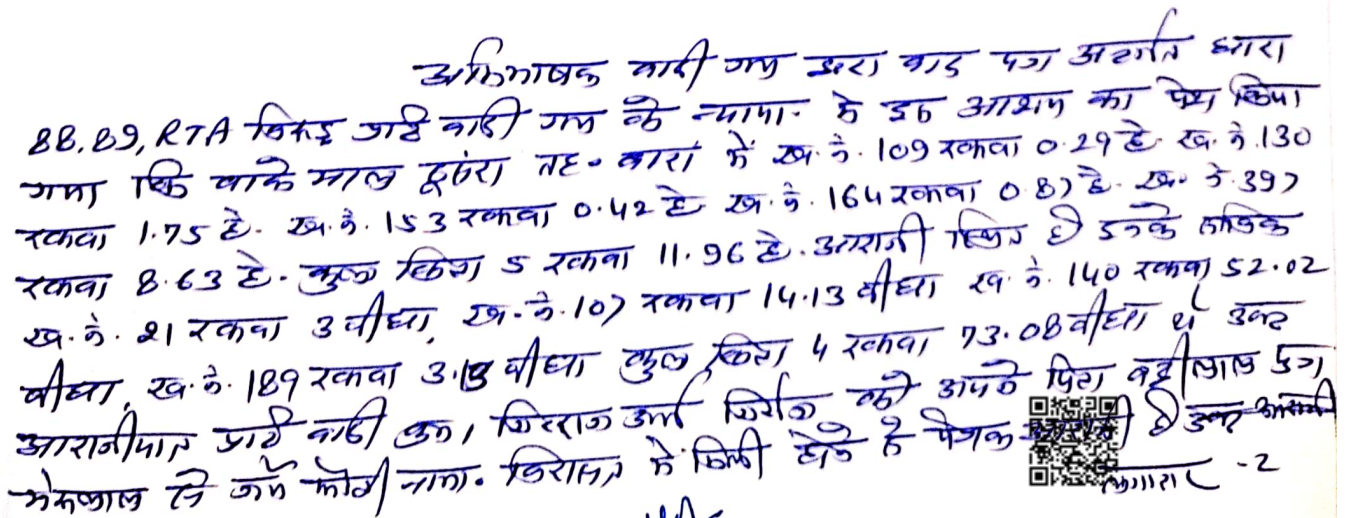 अभिभाषक वादी गण द्वारा वाद पत्र अन्तर्गत धारा
88, 89, RTA विरूद्ध प्रति वादी गण के न्याया. में इस आशय का पेश किया
गया कि वाके माल ता तह. बारां में ख.नं. 109 रकवा 0.29 है. ख.नं. 130
रकवा 1.75 है. ख.नं. 153 रकवा 0.42 है ख.नं. 164 रकवा 0.87 है. ख.नं. 397
रकवा 8.63 है. कुल किता 5 रकवा 11.96 है. आराजी स्थित है इनके साबिक
ख.नं. 21 रकवा 3 बीघा, ख.नं. 107 रकवा 14.13 बीघा ख.नं. 140 रकवा 52.02
बीघा, ख.नं. 189 रकवा 3.13 बीघा कुल किता 4 रकवा 73.08 बीघा थे उक्त
आराजीयात प्रति वादी क्र. 1 उर्फ को अपने पिता बद्रीलाल पुत्र
से विरासत में मिली होने से पैतृक है उक्त आराजी
लगातार -2